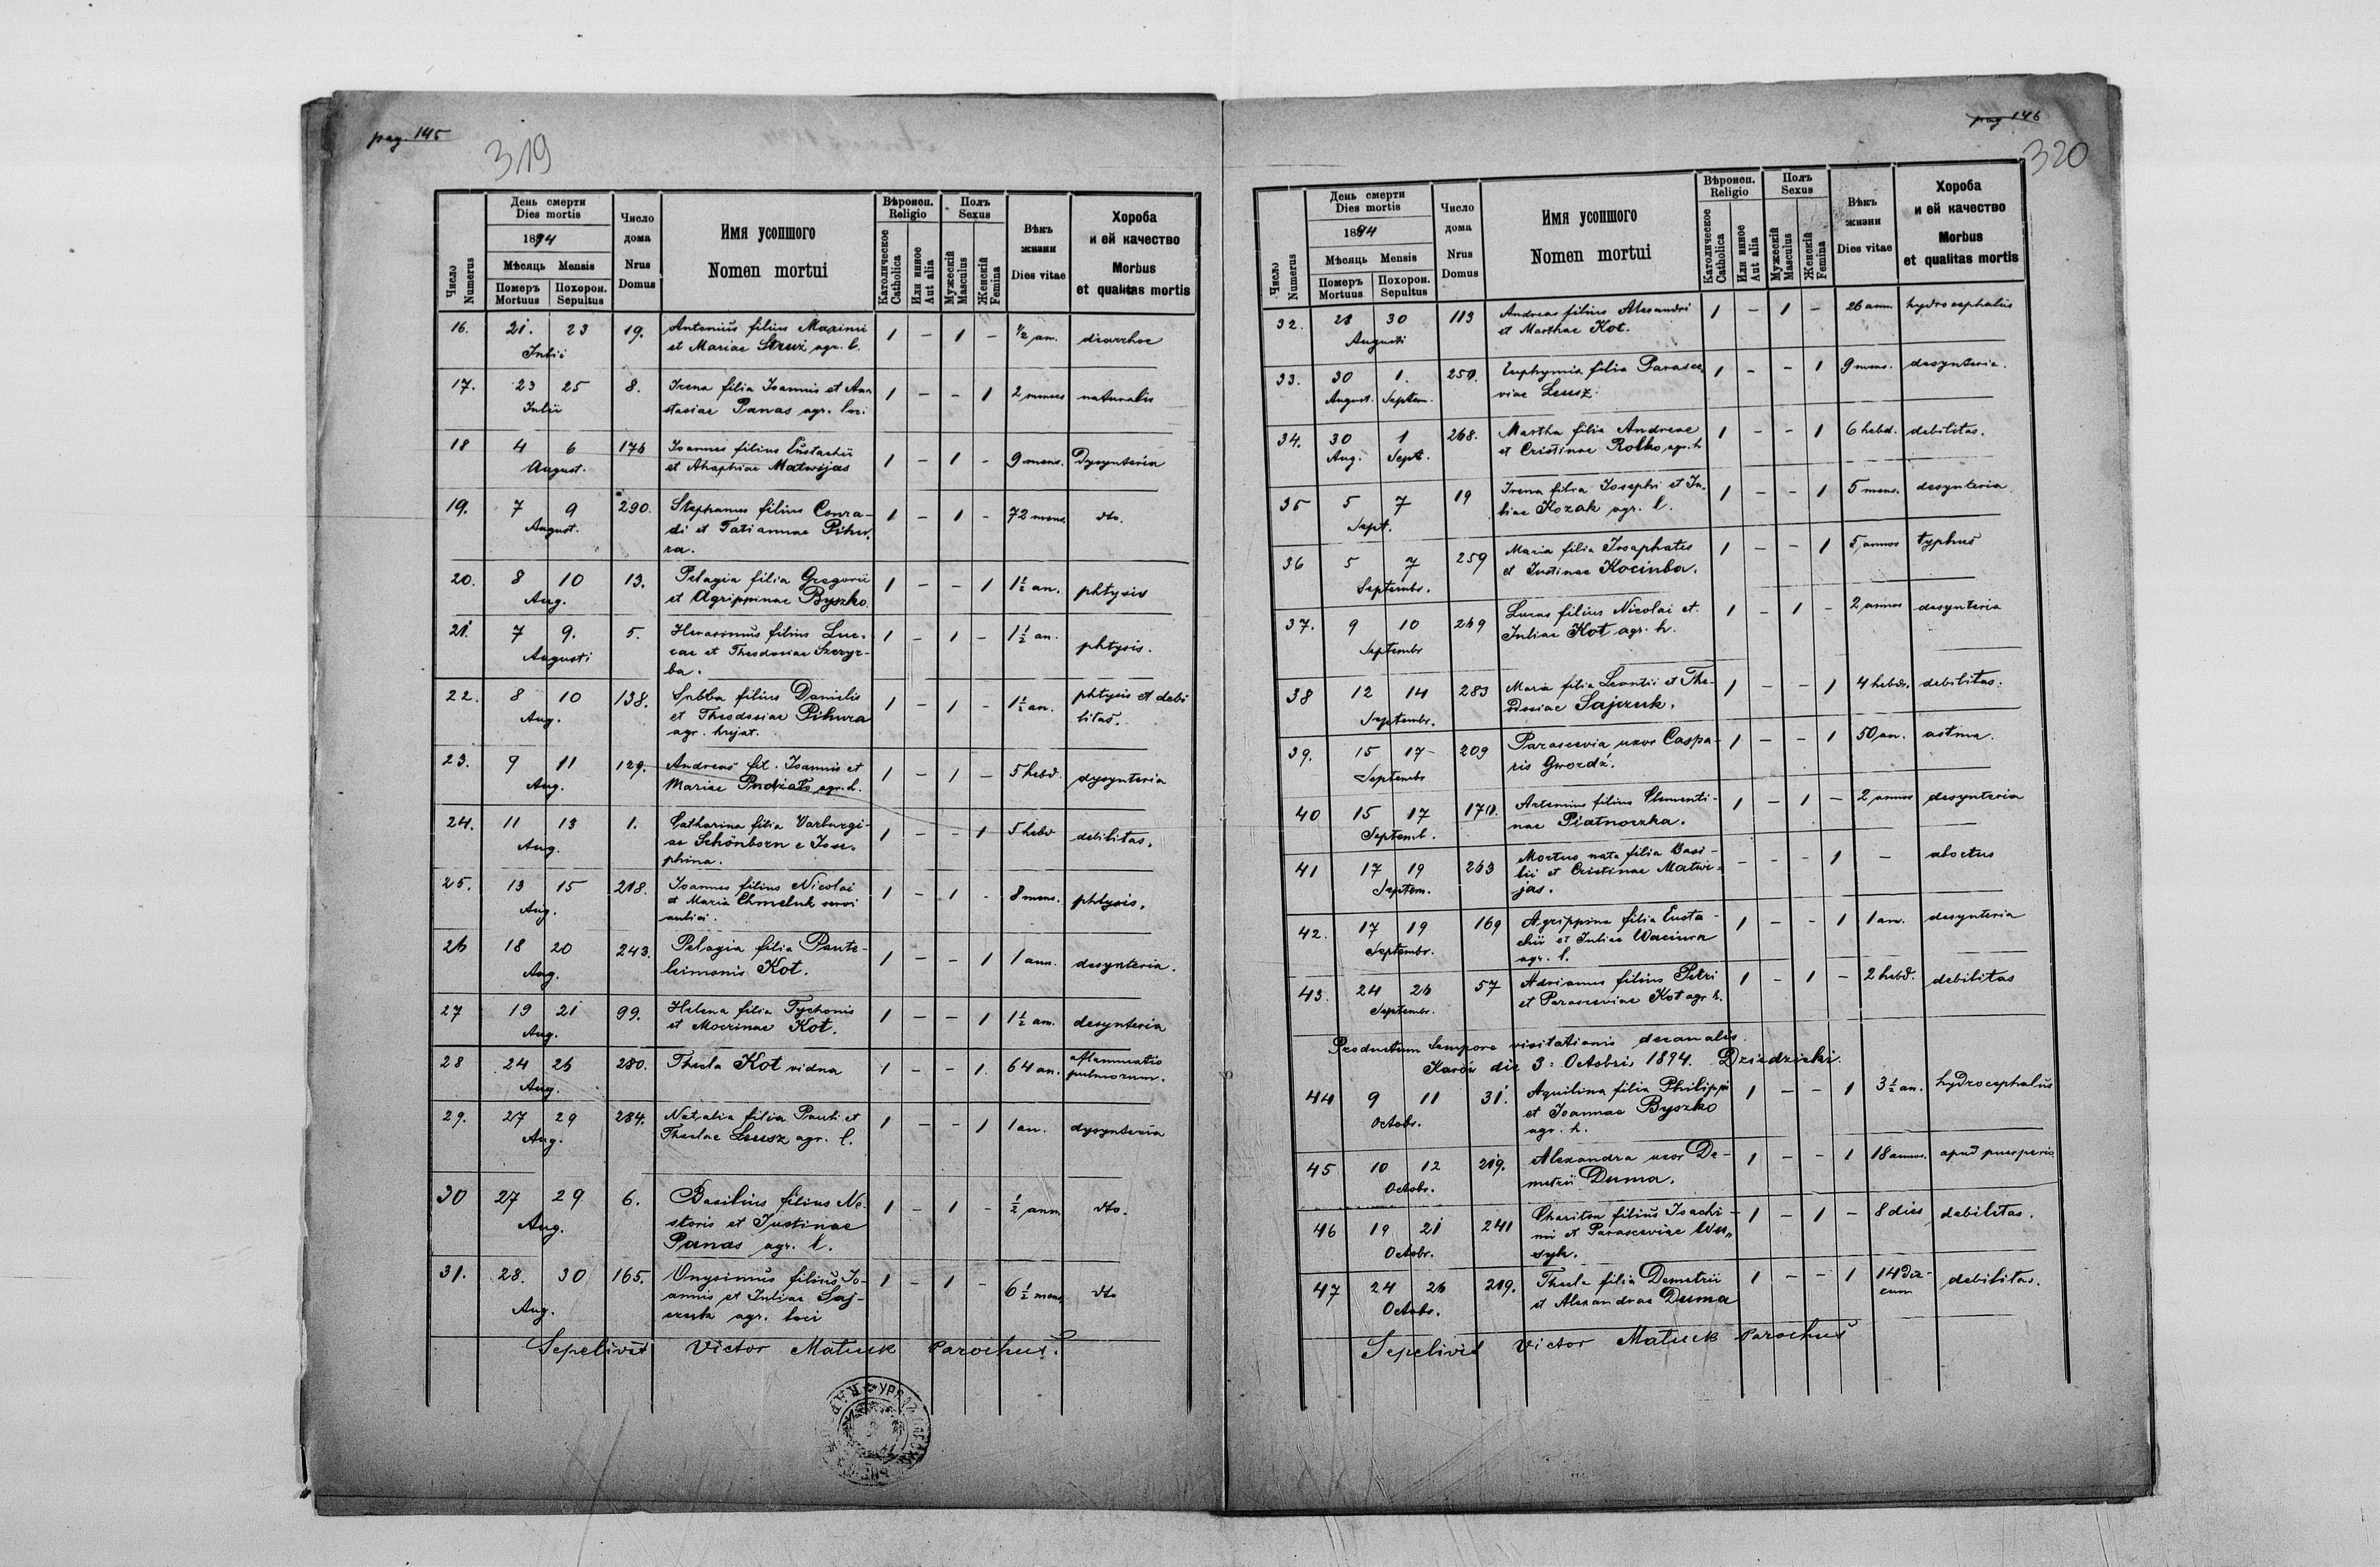 pag. 145
319
Число Numerus
День смерти
Dies mortis
1894
Мѣсяць Mensis
Померъ Mortuus
Похорон. Sepultus
Число дома
Nrus Domus
Имя усопшого
Nomen mortui
Вѣроисп.
Religio
Католическое Catholica
Или инное Aut alia
Полъ
Sexus
Мужескій Masculus
Женскій Femina
Вѣкъ жизни
Dies vitae
Хороба
и ей качество
Morbus
et qualitas mortis
16. 21. 23 19. Antonius filius Maximi 1 – 1 – 1/2 an. diarrhoe
Julii et Mariae Struź agr. l.
17. 23 25 8. Irena filia Ioannis et Ana 1 – – 1 2 menses naturalis
Julii stasiae Panas agr. loci
18 4 6 176 Ioannes filius Eustachii 1 – 1 – 9 mens. Dysynteria
August. et Ahaphiae Matwijas
19. 7 9 290. Stephanus filius Conra- 1 – 1 – 72 mens. dto.
August. di et Tatiannae Pihu-
ra.
20. 8 10 13. Pelagia filia Gregorii 1 – – 1 1 1/2 an. phtysis
Aug. et Agrippinae Byszko
21. 7 9. 5. Herasimus filius Luc- 1 – 1 – 1 1/2 an. phtysis.
Augusti cae et Theodosiae Szczyr-
ba.
22. 8 10 138. Sabba filius Danielis 1 – 1 – 1 1/2 an. phtysis et debi
Aug. et Theodosiae Pihura litas.
agr. hujat.
23. 9 11 129. Andreas fil. Ioannis et 1 – 1 – 5 hebd. dysynteria
Aug. Mariae agr. h.
24. 11 13 1. Catharina filia Varburgi- 1 – – 1 5 hebd debilitas.
Aug. ae Schönborn e Jose-
phina.
25. 13 15 218. Ioannes filius Nicolai 1 – 1 – 8 mens. phtysis.
Aug. et Maria Chmeluk servi
aulici.
26 18 20 243. Pelagia filia Pante- 1 – – 1 1 ann. desynteria.
Aug. leimonis Kot.
27 19 21 99. Helena filia Tychonis 1 – – 1 1 1/2 an. desynteria
Aug. et Mocrinae Kot.
28 24 26 280. Thecla Kot vidua 1 – – 1. 64 an. aflammatio
Aug. pulmorum.
29. 27 29 284. Natalia filia Pauli et 1 – – 1 1 an. dysynteria
Aug. Theclae Leusz agr. l.
30 27 29 6. Basilius filius Ne- 1 – 1 – 1/2 ann dto.
Aug. storis et Justinae
Panas agr. l.
31. 28. 30 165. Onysimus filius Io- 1 – 1 – 6 1/2 mens. dto
Aug. annis et Juliae Saj-
czuk agr. loci
Sepelivit Victor Matiuk Parochus.
pag 146
320
Число Numerus
День смерти
Dies mortis
1894
Мѣсяць Mensis
Померъ Mortuus
Похорон. Sepultus
Число дома
Nrus Domus
Имя усопшого
Nomen mortui
Вѣроисп.
Religio
Католическое Catholica
Или инное Aut alia
Полъ
Sexus
Мужескій Masculus
Женскій Femina
Вѣкъ жизни
Dies vitae
Хороба
и ей качество
Morbus
et qualitas mortis
32. 28 30 113 Andreas filius Alexandri 1 – 1 – 26 ann. hydrocephalus
Augusti et Marthae Kot.
33. 30 1. 250. Euphymia filia Parasce 1 – – 1 9 mens. desynteria.
August. Septem. viae Leusz.
34. 30 1 268. Martha filia Andreae 1 – – 1 6 hebd. debilitas.
Aug. Sept. et Cristinae Rolko agr. h
35 5 7 19 Irena filia Josephi et Ju- 1 – – 1 5 mens. desynteria
Sept. liae Kozak agr. l.
36 5 7 259 Maria filia Josaphates 1 – – 1 5 annos typhus
Septembr. et Justinae Kociuba.
37. 9 10 249 Lucas filius Nicolai et 1 – 1 – 2 annos desynteria
Septembr Juliae Kot agr. h.
38 12 14 283 Maria filia Leontii et The- 1 – – 1 4 hebdr. debilitas.
Septembr. odosiae Sajczuk.
39. 15 17 209 Parascevia uxor Caspa- 1 – – 1 50 an. astma.
Septembr ris Gwozdź.
40 15 17 170. Artemius filius Clementi- 1 – 1 – 2 annos desynteria
Septemb. nae Piatnoczka.
41 17 19 263 Mortuo nata filia Basi- – – – 1 – aboctus
Septem. lii et Cristinae Matwi-
jas.
42. 17 19 169 Agrippina filia Eusta- 1 – – 1 1 an. desynteria
Septembr. chii et Juliae Waciura
agr. l.
43. 24 26 57 Adrianus filius Petri 1 – 1 – 2 hebd. debilitas
Septembr. et Parasceviae Kot agr h.
Productum tempore visitationis decanalis.
Karów die 3. Octobris 1894. Dziedzicki.
44 9 11 31. Aquilina filia Philippi 1 – – 1 3 1/2 an. hydrocephalus
Octobr. et Joannae Byszko
agr. h.
45 10 12 219. Alexandra uxor De- 1 – – 1 18 annos. apud puerperis
Octobr. metrii Duma.
46 19 21 241 Chariton filius Joachi- 1 – 1 – 8 dies debilitas.
Octobr. mi et Parasceviae Wes-
syk.
47 24 26 219. Thecla filia Demetrii 1 – – 1 14 die- debilitas.
Octobr. et Alexandrae Duma rum
Sepelivit Victor Matiuk Parochus